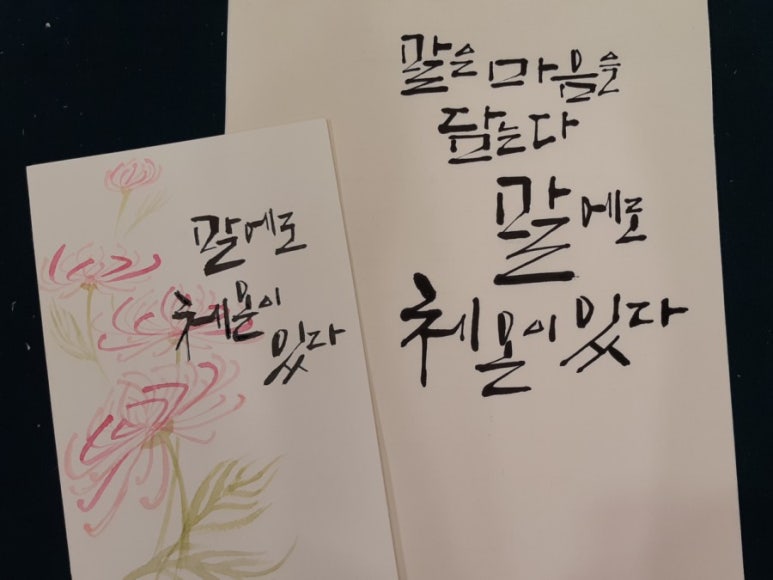 말에도
체온이
있다
말은 마음을
담는다
말에도
체온이 있다